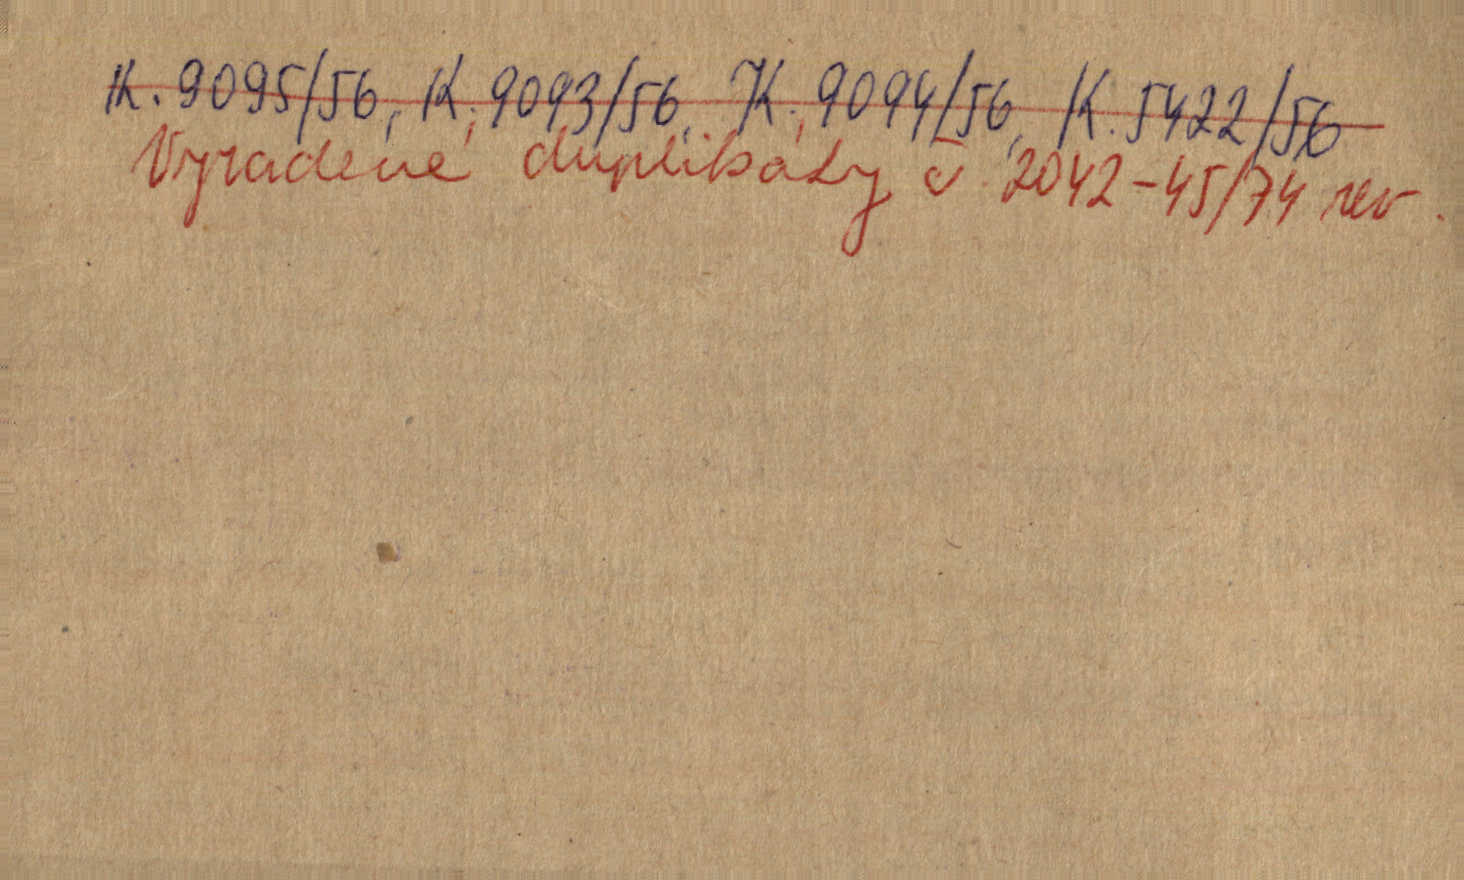 K. 9095/56, K. 9093/56, K. 9094/56, K. 5422/56
Vyradené duplikáty č. 2042-45/74 rev.